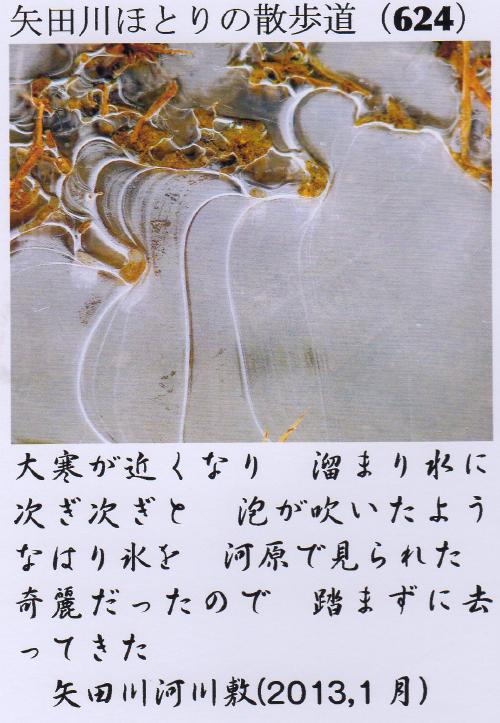 矢田川ほとりの散歩道（624）
大寒が近くなり　溜まり水に
次ぎ次ぎと　泡が吹いたよう
なはり氷を　河原で見られた
奇麗だったので　踏まずに去
ってきた
矢田川河川敷(2013,1月)